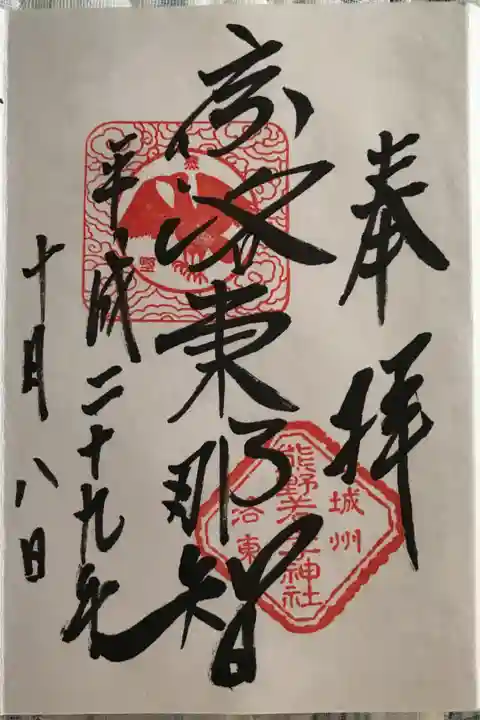 奉拝
京洛東那智
平成二十九年
十月八日
城州
熊野若王子神社
洛東